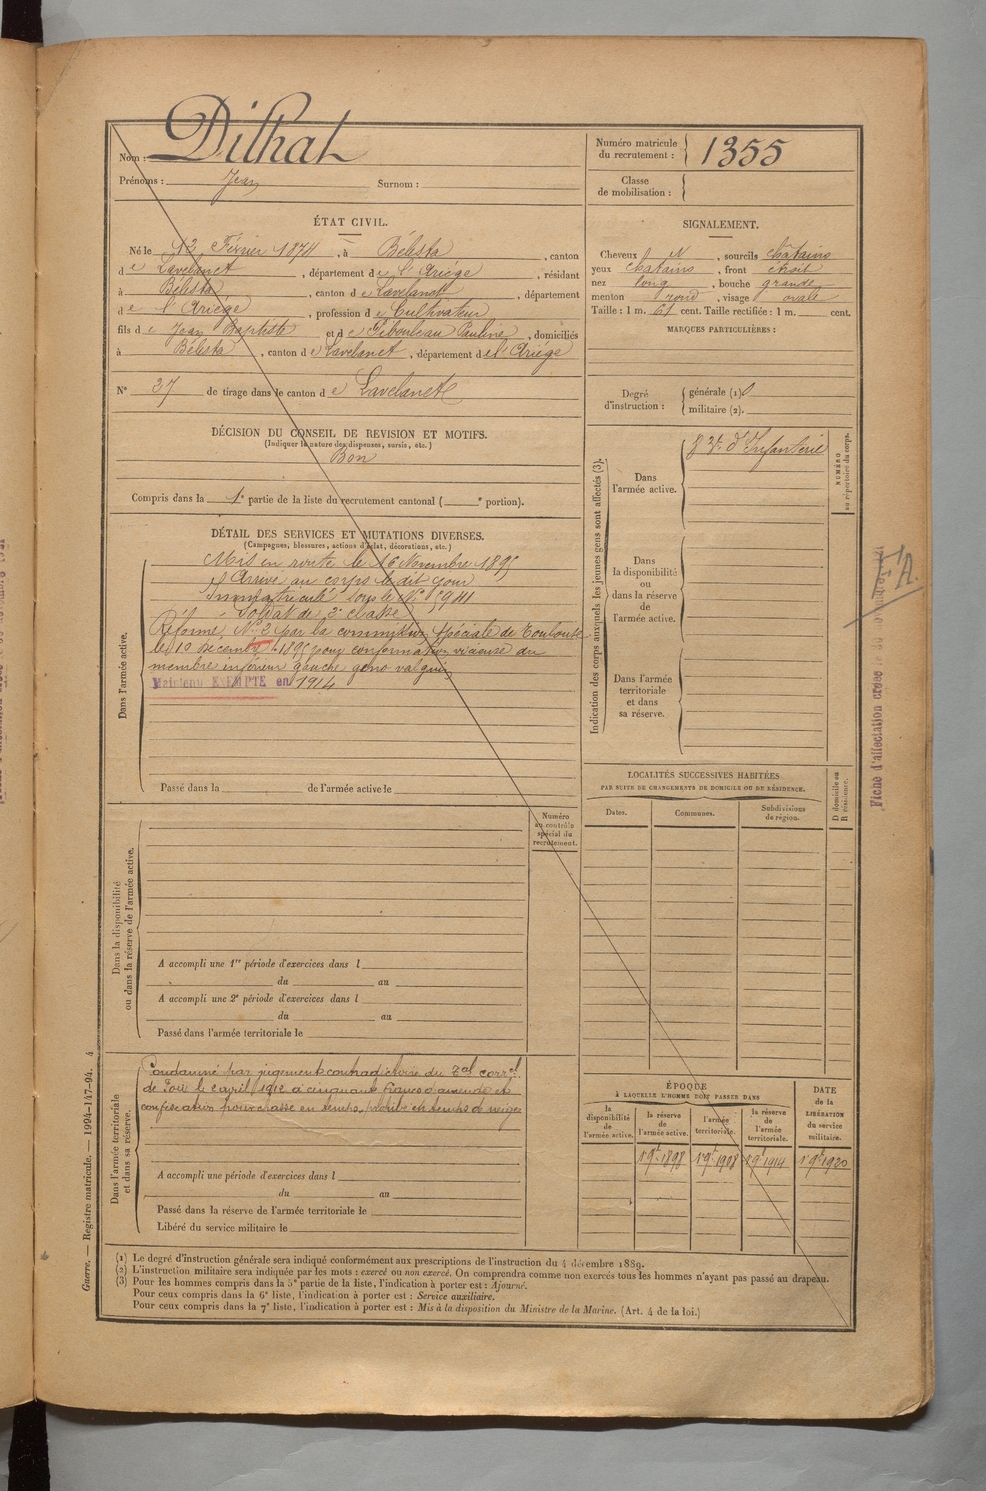 Nom : Dilhat
Prénoms : Jean Surnom :
Numéro matricule
du recrutement : 1355
Classe
de mobilisation :
ÉTAT CIVIL.
Né le 12 Février 1874, à Bélesta, canton
de Lavelanet, département de l'Ariège, résidant
à Bélesta, canton de Lavelanet, département
de l'Ariége, profession de Cultivateur
fils de Jean Baptiste et de Pauline, domiciliés
à Bélesta, canton de Lavelanet, département de l'Ariège
N° 27 de tirage dans le canton de Lavelanet
DÉCISION DU CONSEIL DE REVISION ET MOTIFS.
(Indiquer la nature des dispenses, sursis, etc.)
Bon
Compris dans la 1e partie de la liste du recrutement cantonal ( e portion).
SIGNALEMENT.
Cheveux N, sourcils châtains
yeux chatains, front étroit
nez long, bouche grande
menton rond, visage ovale
Taille : 1 m. 61 cent. Taille rectifiée : 1 m. cent.
MARQUES PARTICULIÈRES :
Degré
d'instruction :
générale (1)
militaire (2).
DÉTAIL DES SERVICES ET MUTATIONS DIVERSES.
(Campagnes, blessures, actions d'éclat, décorations, etc.)
Dans l'armée active.
Mis en route le 16 Novembre 1895
Arrivé au corps le dit jour
Immatriculé sous le N°
Soldat de 2e classe
Réformé N° 2 par la commission spéciale de Toulouse
le 10 décembre 1895 pour conformation vicieuse du
membre inférieur gauche geno valgum
Maintenu EXEMPTÉ en 1914
Passé dans la de l'armée active le
Indication des corps auxquels les jeunes gens sont affectés (3).
Dans
l'armée active.
d'Infanterie
Dans
la disponibilité
ou dans la réserve
de
l'armée active.
Dans l'armée
territoriale
et dans
sa réserve.
NUMÉRO
au répertoire du corps.
Fiche d'affectation créée le
LOCALITÉS SUCCESSIVES HABITÉES
PAR SUITE DE CHANGEMENTS DE DOMICILE OU DE RÉSIDENCE.
Dates.
Communes.
Subdivisions
de région.
D domicile ou
R résidence.
Dans la disponibilité
ou dans la réserve de l'armée active.
Numéro
au contrôle
spécial du
recrutement.
A accompli une 1re période d'exercices dans l
du au
A accompli une 2e période d'exercices dans l
du au
Passé dans l'armée territoriale le
Dans l'armée territoriale
et dans sa réserve.
Condamné par jugement contradictoire du Tal correl
de Foix le 2 avril 1912 à cinquante francs d'amende et
confiscation pour chasse en temps prohibé en temps de neige
A accompli une période d'exercices dans l
du au
Passé dans la réserve de l'armée territoriale le
Libéré du service militaire le
ÉPOQUE
À LAQUELLE L'HOMME DOIT PASSER DANS
la
disponibilité
de
l'armée active.
la réserve
de
l'armée active.
l'armée
territoriale.
la réserve
de
l'armée
territoriale.
DATE
de la
LIBÉRATION
du service
militaire.
1 9bre 1898 1 9bre 1908 1 9bre 1914 1 9bre 1920
(1) Le degré d'instruction générale sera indiqué conformément aux prescriptions de l'instruction du 4 décembre 1889.
(2) L'instruction militaire sera indiquée par les mots : exercé ou non exercé. On comprendra comme non exercés tous les hommes n'ayant pas passé au drapeau.
(3) Pour les hommes compris dans la 5e partie de la liste, l'indication à porter est : Ajourné.
Pour ceux compris dans la 6e liste, l'indication à porter est : Service auxiliaire.
Pour ceux compris dans la 7e liste, l'indication à porter est : Mis à la disposition du Ministre de la Marine. (Art. 4 de la loi.)
Guerre. — Registre matricule. — 1994-147-94. 4